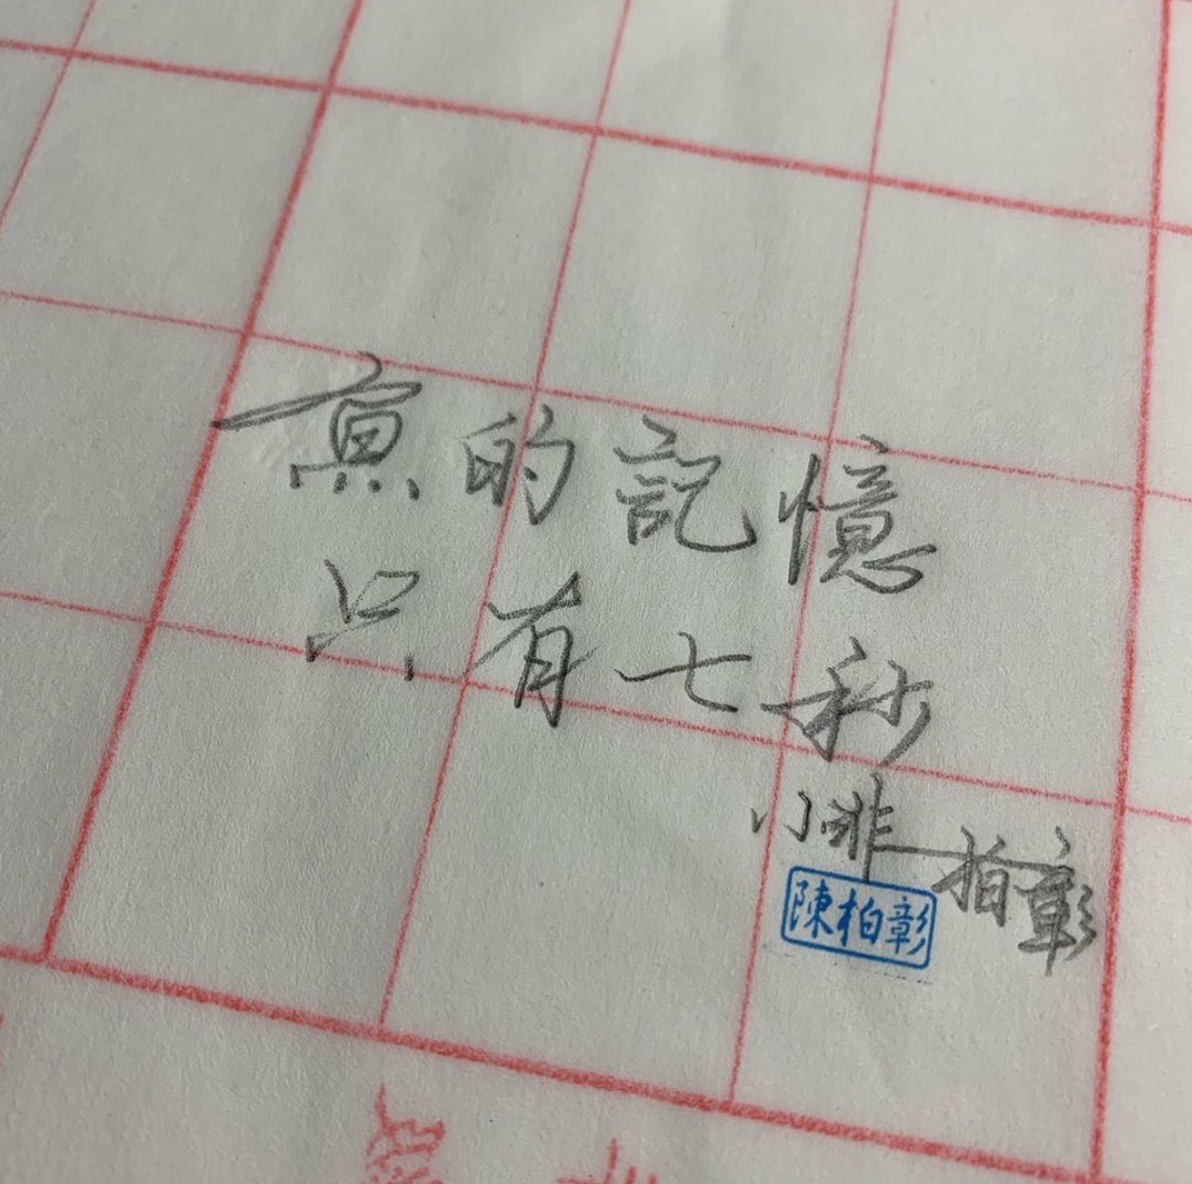 魚的記憶
只有七秒
小啡 柏彰
陳柏彰